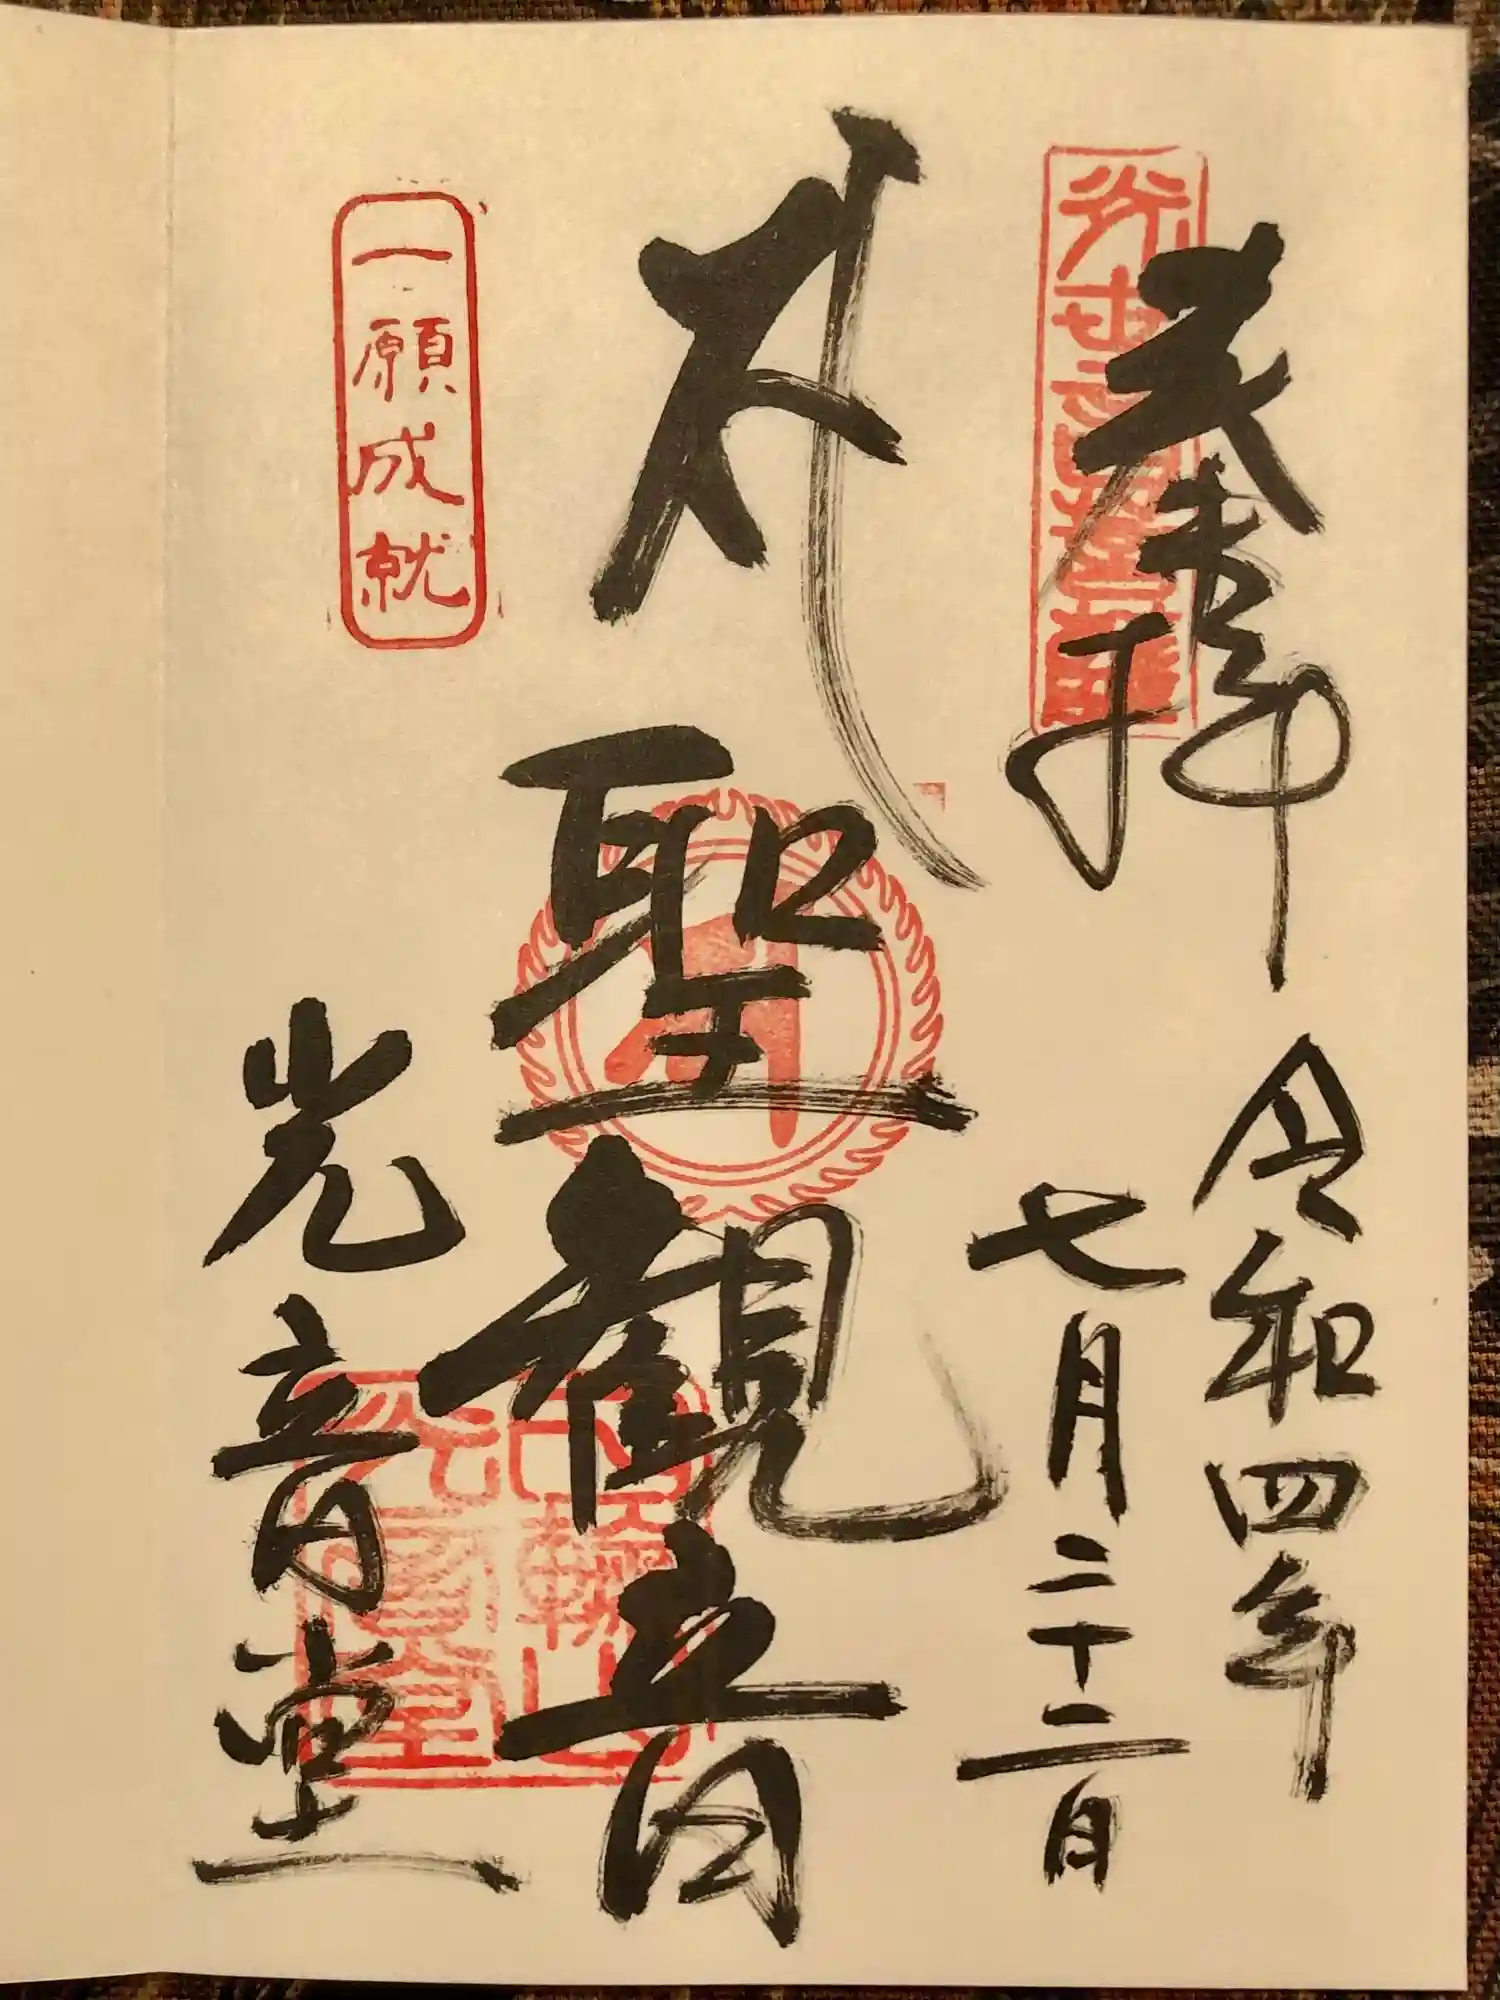 奉拝
令和四年
七月二十二日
サ
聖観音
一願成就
光音堂